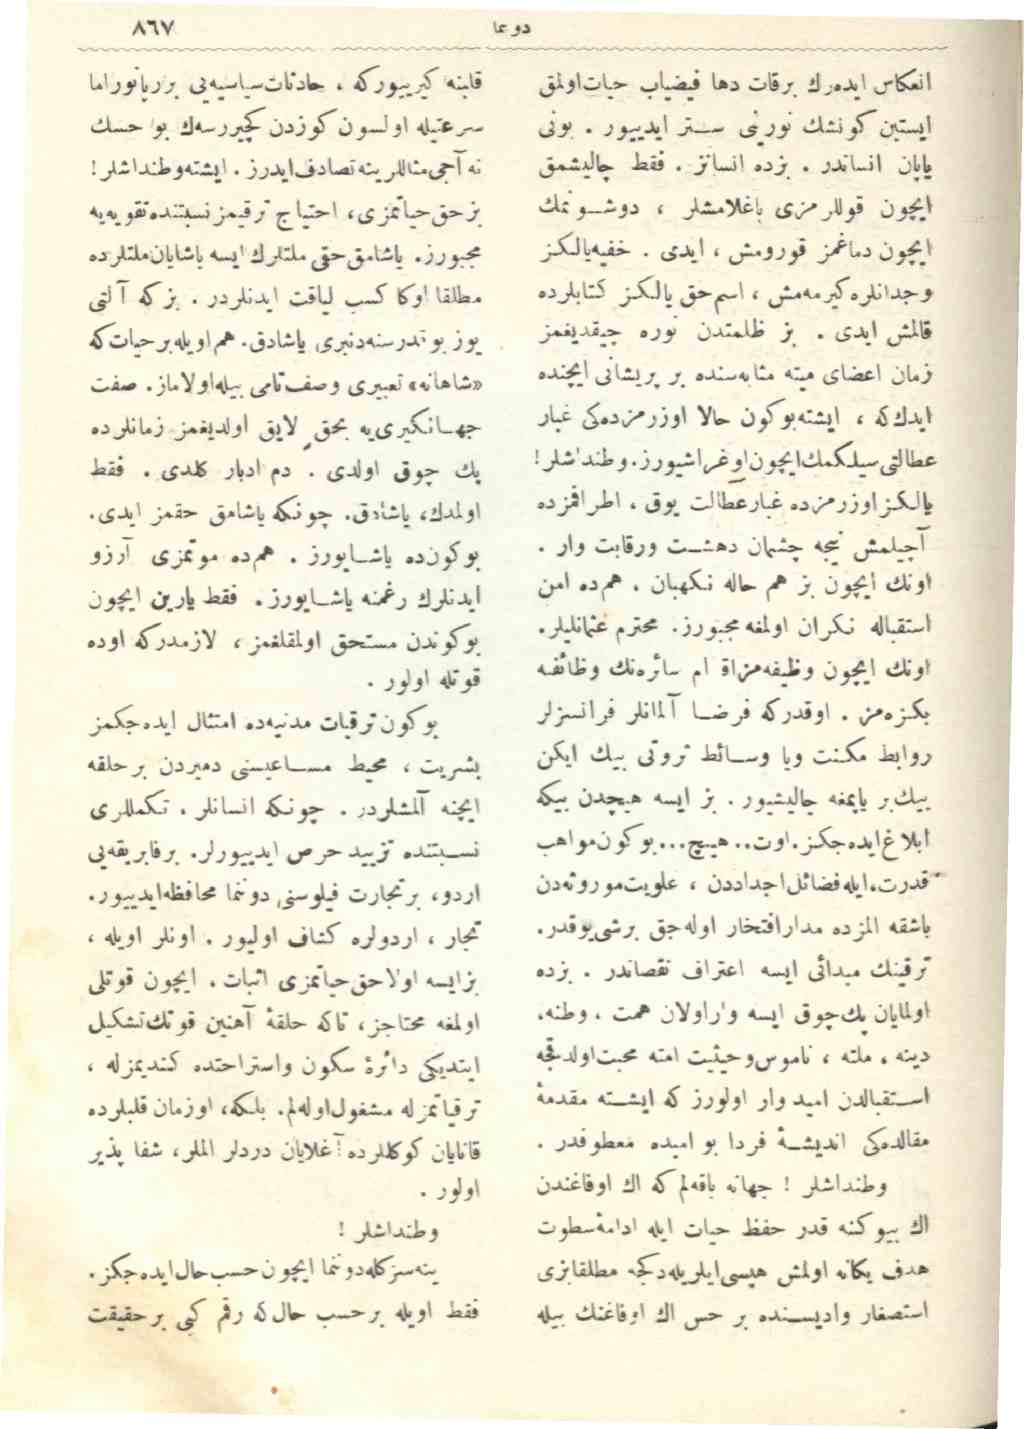 ٨٦٧
انعكاس ایده‌رك برقات دها فیضیاب حیات اولمق
ایستین كونشك نورینی ستر ایدییور . بونی
یاپان انساندر . بزده انسانز . فقط چالیشمق
ایچون قوللرمزی باغلامشلر ، دوشونمك
ایچون دماغمز قورومش ، ایدی . خفیه یالكز
وجدانلره كیرمه‌مش ، اسم حق یالكز كتابلرده
قالمش ایدی . بز ظلمتدن نوره چیقدیغمز
زمان اعضای میته مثابه‌سنده بر پریشانی ایچنده
ایدك كه ، ایشته بوكون حالا اوزرمزده‌كی غبار
عطالتی سیلكمك ایچون اوغراشیورز . وطنداشلر !
یالكز اوزرمزده غبار عطالت یوق ، اطرافمزده
آچیلمش نیجه چشمان دهشت ورقابت وار .
اونك ایچون بز هم حاله نكهبان . هم ده امن
استقباله نكران اولمغه مجبورز . محترم عثمانلیلر .
اونك ایچون وظیفه‌مز اقوام سائره‌نك وظائفنه
بكزه‌مز . اوقدر كه فرضا آلمانلر فرانسزلر
روابط مكنت ویا وسائط ثروتی بیك ایكن
بیك بر یاپمغه چالیشیور . بز ایسه هیچدن بیكه
ابلاغ ایده‌جكز . اوت .. هیچ ... بوكون مواهب
قدرت ، ایله فضائل اجداددن ، علویت موروثه‌دن
باشقه المزده مدار افتخار اوله‌جق برشی یوقدر .
ترقینك مبدائی ایسه اعتراف نقصاندر . بزده
اولمایان پك چوق ایسه واراولان همت ، وطنه ،
دینه ، ملته ، ناموس وحیثیت امته محبت اولدقجه
استقبالدن امید وار اولورز كه ایشته مقدمهٔ
مقالده‌كی اندیشهٔ فردا بو امیده معطوفدر .
وطنداشلر ! جهانه باقه‌لم كه اك اوفاغندن
اك بیوكنه قدر حفظ حیات ایله ادامهٔ سطوت
هدف یكانه اولمش هپسی ایلریله‌دكجه مطلقا بزی
استصغار وادیسنده بر حس اك اوفاغنك بیله
قلبنه كیرییور كه ، حادثات سیاسیه‌یی بزر پانوراما
سرعتیله اولسون كوزدن كچیررسه‌ك بو حسك
نه آجی مثاللرینه تصادف ایدرز . ایشته وطنداشلر !
بز حق حیاتمزی ، احتیاج ترقیمز نسبتنده تقویه‌یه
مجبورز . یاشامق حقی ملتلرك ایسه یاشایان ملتلرده
مطلقا اوكا كسب لیاقت ایدنلردر . بز كه آلتی
یوز بو قدر سنه‌دنبری یاشادق . هم اویله بر حیات كه
«شاهانه» تعبیری وصف تامی بیله اولاماز . صفت
جهانكیری‌یه بحق لایق اولدیغمز زمانلرده
پك چوق اولدی . دم ادبار كلدی . فقط
اولمدك ، یاشادق . چونكه یاشامق حقمز ایدی .
بوكون ده یاشایورز . هم ده موتمزی آرزو
ایدنلرك رغمنه یاشایورز . فقط یارین ایچون
بوكوندن مستحق اولمقلغمز ، لازمدر كه اوده
قوتله اولور .
بوكون ترقیات مدنیه‌ده امتثال ایده‌جكمز
بشریت ، محیط مساعیسنی دمیردن بر حلقه
ایچنه آلمشلردر . چونكه انسانلر . تكمللری
نسبتنده تزیید حرص ایدییورلر . بر فابریقه‌یی
اردو ، بر تجارت فیلوسنی دونما محافظه ایدییور .
تجار ، اردولره كشاف اولیور . اونلر اویله ،
بز ایسه اولا حق حیاتمزی اثبات . ایچون قوتلی
اولمغه محتاجز ، تاكه حلقهٔ آهنین قوتك تشكیل
ایتدیكی دائرهٔ سكون واستراحتده كندیمزله ،
ترقیاتمزله مشغول اوله‌لم . بلكه ، اوزمان قلبلرده
قانایان كوكللرده آغلایان دردلر الملر ، شفا پذیر
اولور .
وطنداشلر !
ینه سزكله دونما ایچون حسب حال ایده‌جكز .
فقط اویله بر حسب حال كه رقم كبی بر حقیقت